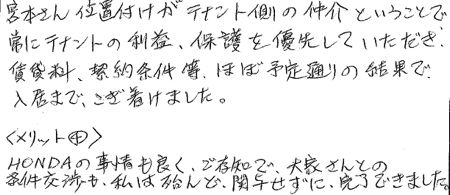 宮本さん位置付けがテナント側の仲介ということで
常にテナントの利益、保護を優先していただき、
賃貸料、契約条件等、ほぼ予定通りの結果で
入居まで、こぎ着けました。
<メリット④>
HONDAの事情も良く、ご存知で、大家さんとの
条件交渉も、私は殆んど、関与せずに、完了できました。